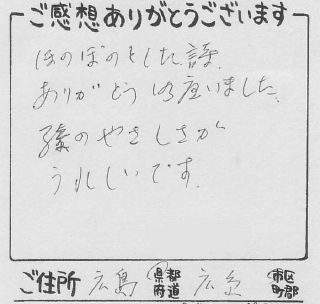 ご感想ありがとうございます
ほのぼのとした詩
ありがとう御座いました。
孫のやさしさが
うれしいです。
ご住所 広島 県都府道 広島 市区町郡